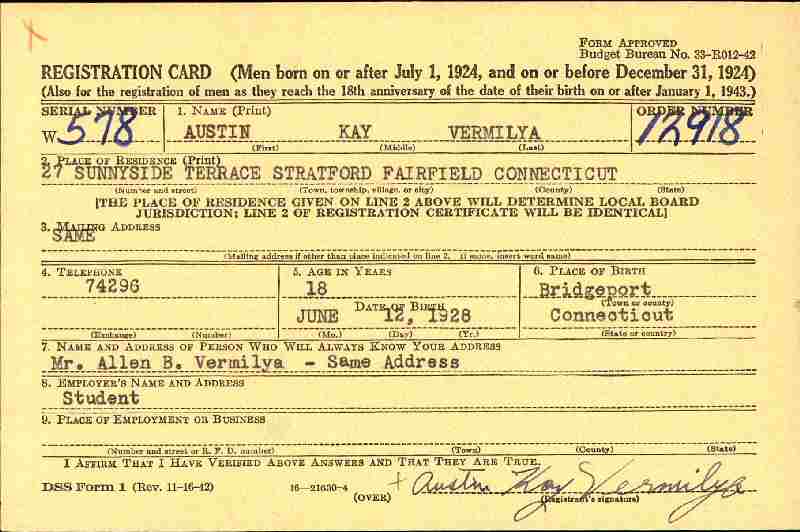 FORM APPROVED
Budget Bureau No. 33-R012-42
REGISTRATION CARD (Men born on or after July 1, 1924, and on or before December 31, 1924)
(Also for the registration of men as they reach the 18th anniversary of the date of their birth on or after January 1, 1943.)
SERIAL NUMBER 1. NAME (Print) ORDER NUMBER
W 578 AUSTIN KAY VERMILYA 12918
(First) (Middle) (Last)
2. PLACE OF RESIDENCE (Print)
27 SUNNYSIDE TERRACE STRATFORD FAIRFIELD CONNECTICUT
(Number and street) (Town, township, village, or city) (County) (State)
[THE PLACE OF RESIDENCE GIVEN ON LINE 2 ABOVE WILL DETERMINE LOCAL BOARD
JURISDICTION; LINE 2 OF REGISTRATION CERTIFICATE WILL BE IDENTICAL]
3. MAILING ADDRESS
SAME
(Mailing address if other than place indicated on line 2. If same, insert word same)
4. TELEPHONE 5. AGE IN YEARS 6. PLACE OF BIRTH
74296 18 Bridgeport
DATE OF BIRTH (Town or county)
JUNE 12, 1928 Connecticut
(Exchange) (Number) (Mo.) (Day) (Yr.) (State or country)
7. NAME AND ADDRESS OF PERSON WHO WILL ALWAYS KNOW YOUR ADDRESS
Mr. Allen B. Vermilya - Same Address
8. EMPLOYER'S NAME AND ADDRESS
Student
9. PLACE OF EMPLOYMENT OR BUSINESS
(Number and street or R. F. D. number) (Town) (County) (State)
I AFFIRM THAT I HAVE VERIFIED ABOVE ANSWERS AND THAT THEY ARE TRUE.
DSS Form 1 (Rev. 11-16-42) 16—21630-4 + Austin Kay Vermilya
(OVER) (Registrant's signature)